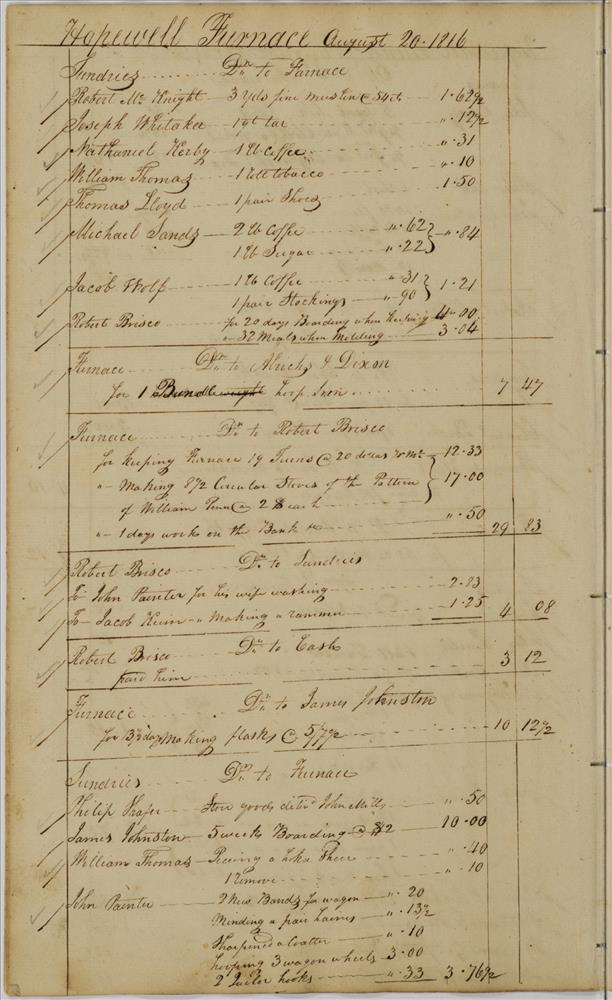 Hopewell Furnace August 20. 1816
Sundries Dr. to Furnace
Robert McKnight 3 yds fine muslin @ 54ct 1.62 1/2
Joseph Whitaker 1 qt tar ".12 1/2
Nathaniel Kerby 1 lb Coffee ".31
William Thomas 1 tobacco ".10
Thomas Lloyd 1 pair Shoes 1.50
Michael Sands 2 lb Coffee ".62 } ".84
1 lb Sugar ".22
Jacob Wolf 1 lb Coffee ".31 } 1.21
1 pair Stockings ".90
Robert Brisco for 20 days Boarding when Keeping 4".00
"- 32 Meals when Molding 3.04
Furnace Dr. to & Dixon
for 1 Bundle hoop Iron 7 47
Furnace Dr. to Robert Brisco
for Keeping Furnace 19 Turns @ 20 dollars 12.33
"- Making 8 1/2 Circular Stoves of the Pattern } 17.00
of William Penn @ 2 $ each
"- 1 days works on the Bank ".50
29 83
Robert Brisco Dr. to Sundries
To John Painter for his wife washing 2.83
To Jacob Keim " Making a rammer 1.25 4 08
Robert Brisco Dr. to Cash
paid him 3 12
Furnace Dr. to James Johnston
for 13 1/2 days Making flasks @ 5/7 1/2 10 12 1/2
Sundries Dr. to Furnace
Philip Shafer Store goods John Mills ".50
James Johnston 5 weeks Boarding @ $2 10.00
William Thomas a ".40
1 ".10
John Painter 2 New Bands for wagon ".20
Minding a pair haims ".13 1/2
Sharpened a Coalter ".10
hooping 3 wagon wheels 3.00
2 hooks ".33 3.76 1/2